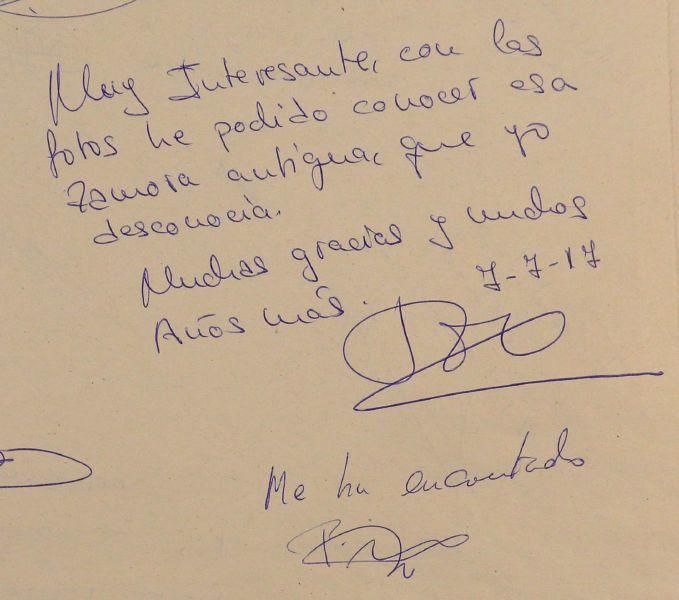 Muy Interesante, con las
fotos he podido conocer esa
Zamora antigua, que yo
desconocía.
Muchas gracias y muchos
Años más.
7-7-17
Me ha encantado